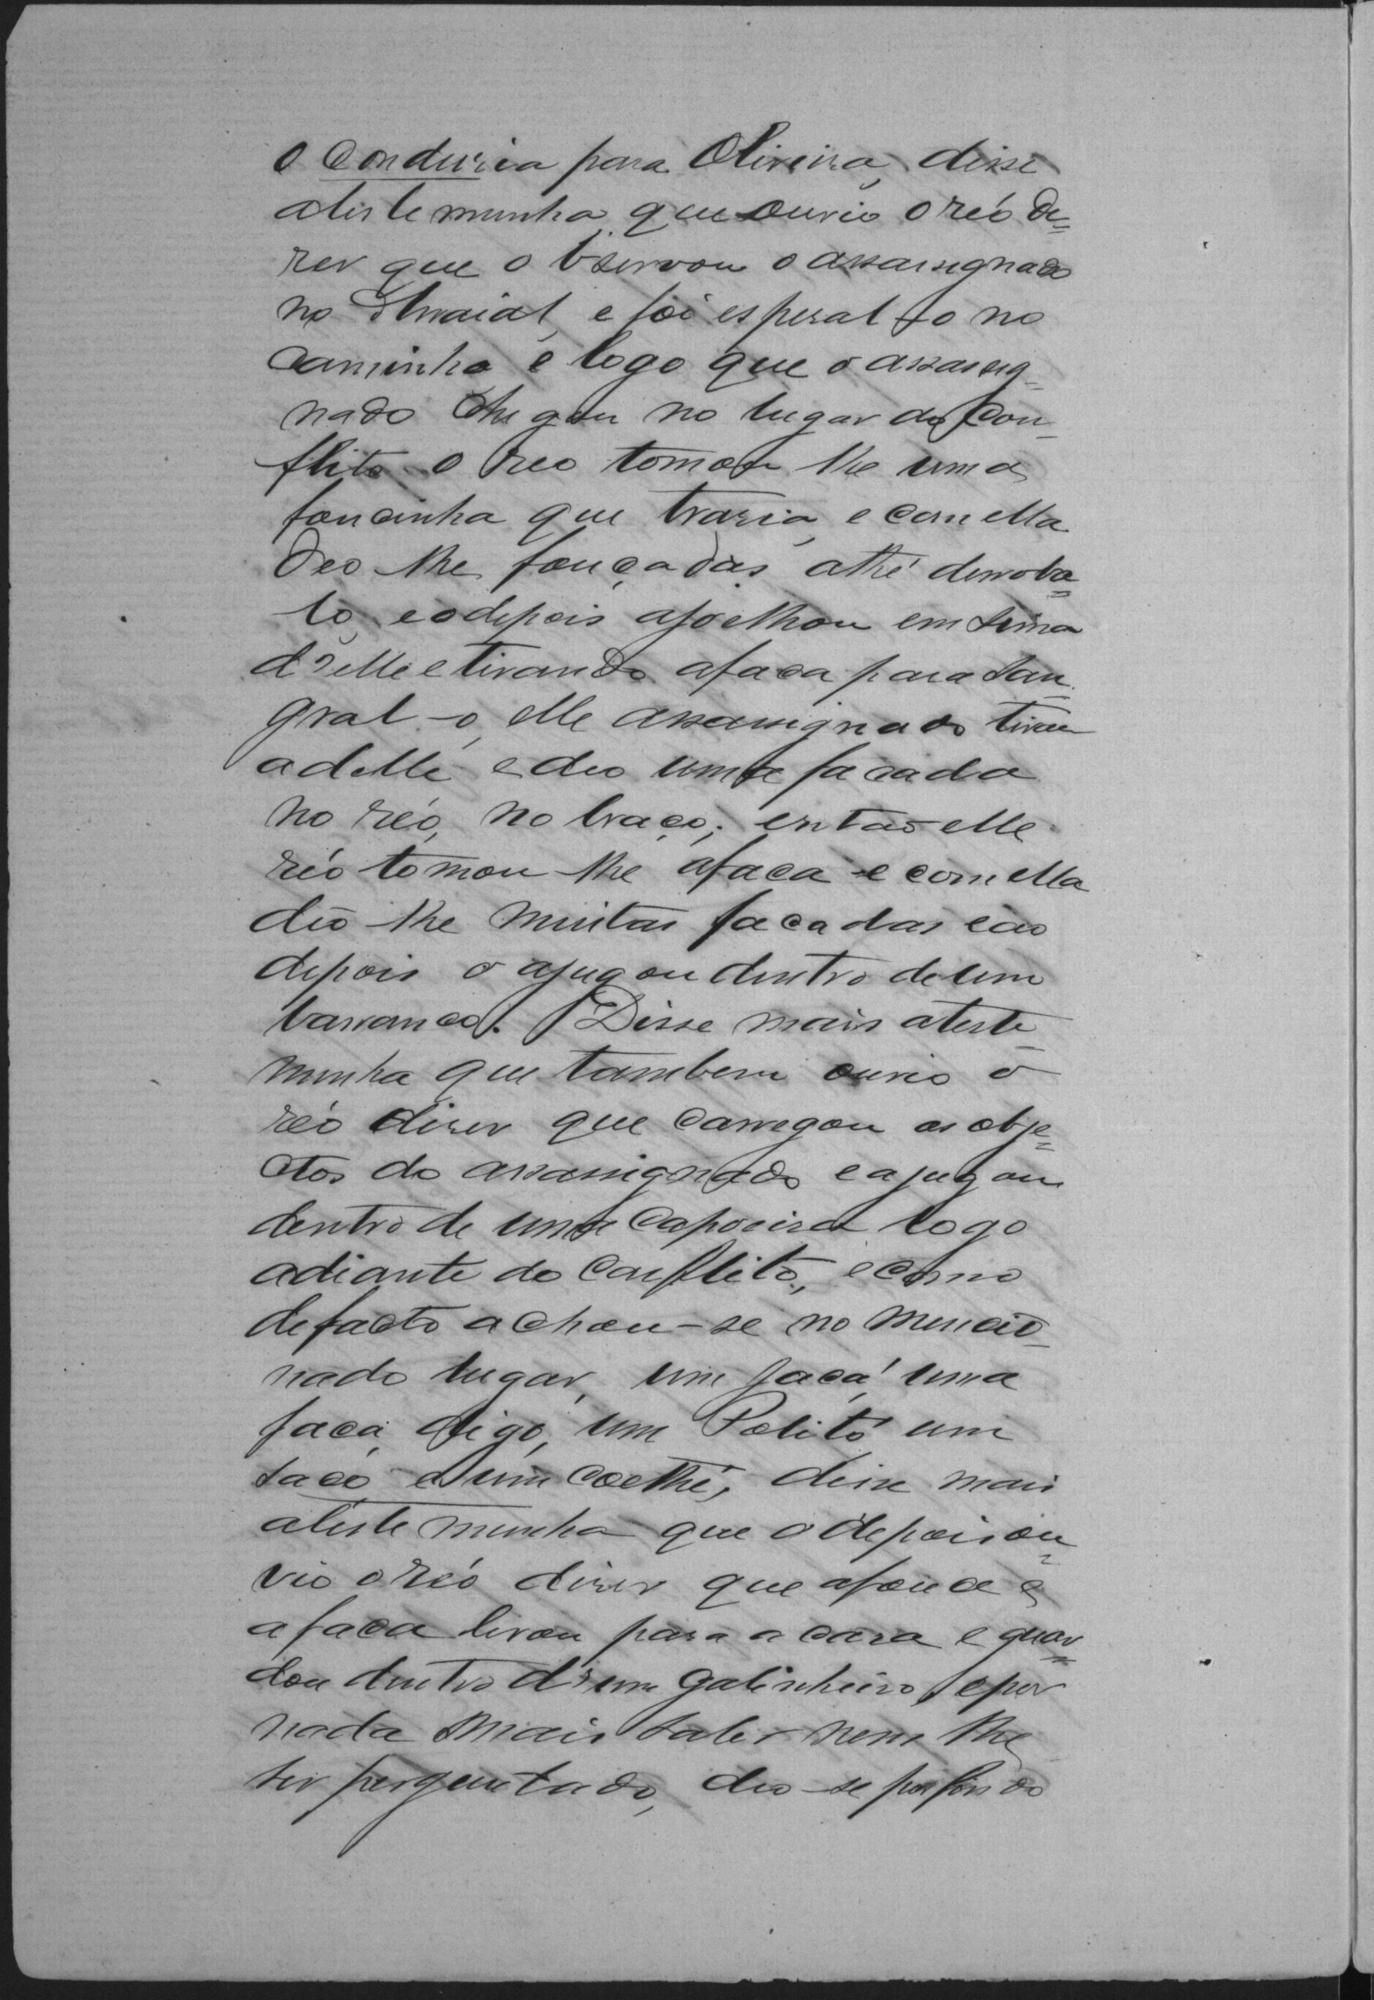 o conduzia para Oliveira, disse
atestemunha que ouvio o réo de=
zer que o bservou o assassignado
no Arraial, e foi esperal-o no
caminho e logo que o assassig=
nado chegou no lugar do con-
flito o reo tomou lhe uma
foucinha que trazia, e com ella
deo lhe fouçadas athé derroba=
lo, eodepois ajoelhou em sima
d'elle e tirando afaca para san-
gral-o, elle assassignado tirou
a delle e deo uma facada
no réo, no braço; entao elle
réo tomou lhe afaca e com ella
deo lhe muitas facadas eao
depois o ajugou dentro de um
barranco. Disse mais ateste-
munha que tambem ouvio o
réo dizer que carregou os obje=
ctos do assassignado e ajugou
dentro de uma capoeira logo
adiante do conflito, e como
defacto achou-se no mencio-
nado lugar, um jacá uma
faca, digo, um Palitó um
saco e um coethé, disse mais
atestemunha que odepois ou-
vio o réo dizer que afouce e
afaca levou para a casa e guar=
dou dentro d'um galinheiro, epor
nada mais saber nem lhe
ser perguntado, deo-se por findo